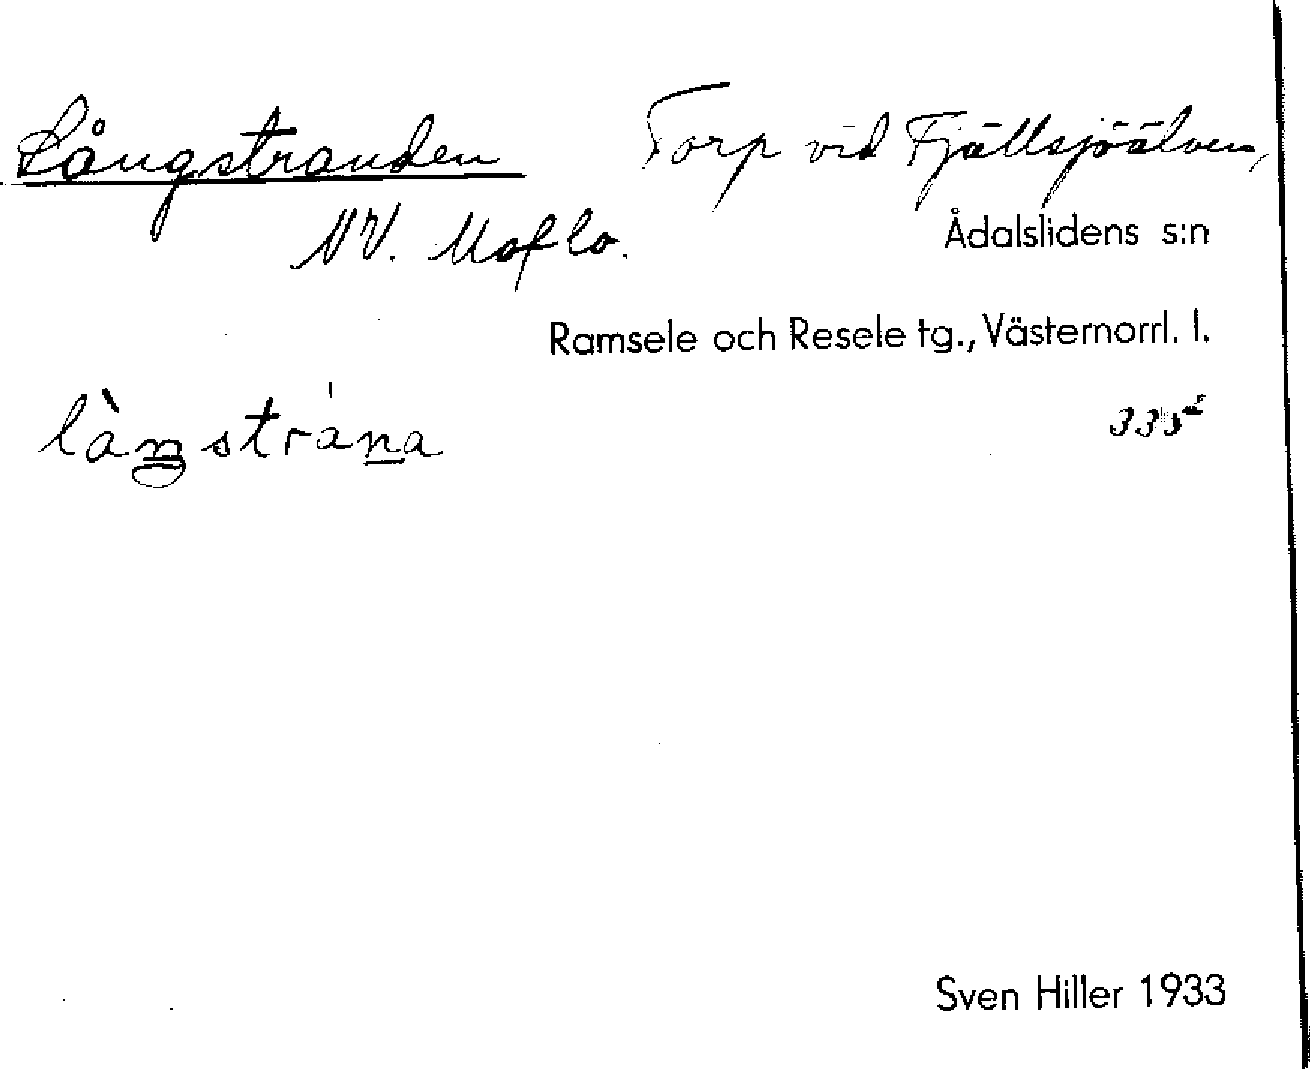 Långstranden Torp vid Fjällsjöälven,
NV. Moflo. Ådalslidens s:n
Ramsele och Resele tg., Västernorrl. l.
làngstrána
Sven Hiller 1933